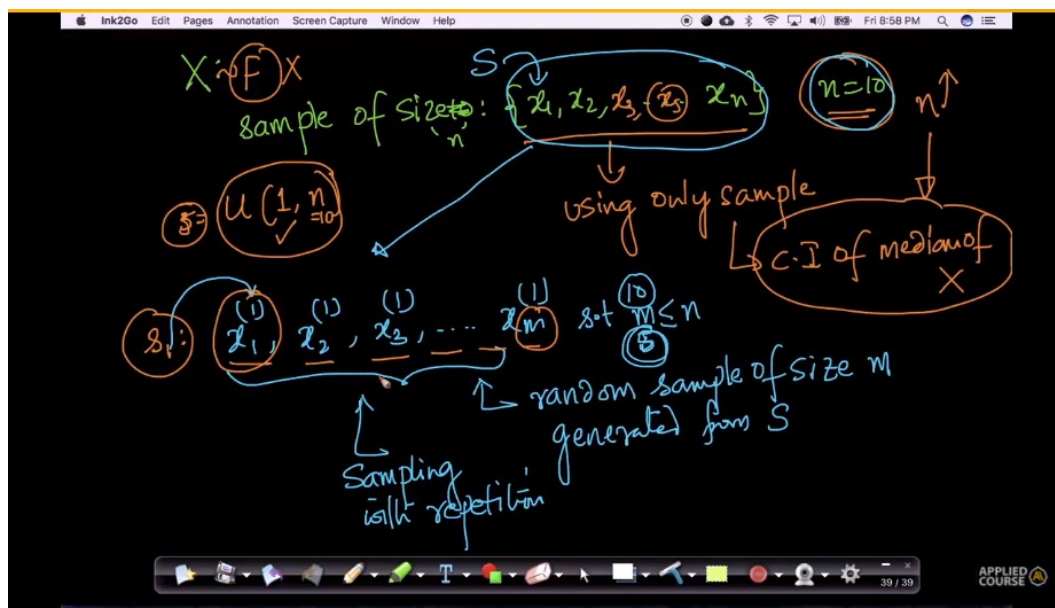 Ink2Go Edit Pages Annotation Screen Capture Window Help Fri 8:58 PM
X ~ F X
S
sample of size 'n': {x₁, x₂, x₃, x₅ xₙ} n=10 n↑
U(1, n =10
using only sample
C.I of median of X
S₁: x₁⁽¹⁾, x₂⁽¹⁾, x₃⁽¹⁾, .... xₘ⁽¹⁾ s.t m≤n
10
5
random sample of size m
generated from S
Sampling
with repetition
39 / 39
APPLIED
COURSE